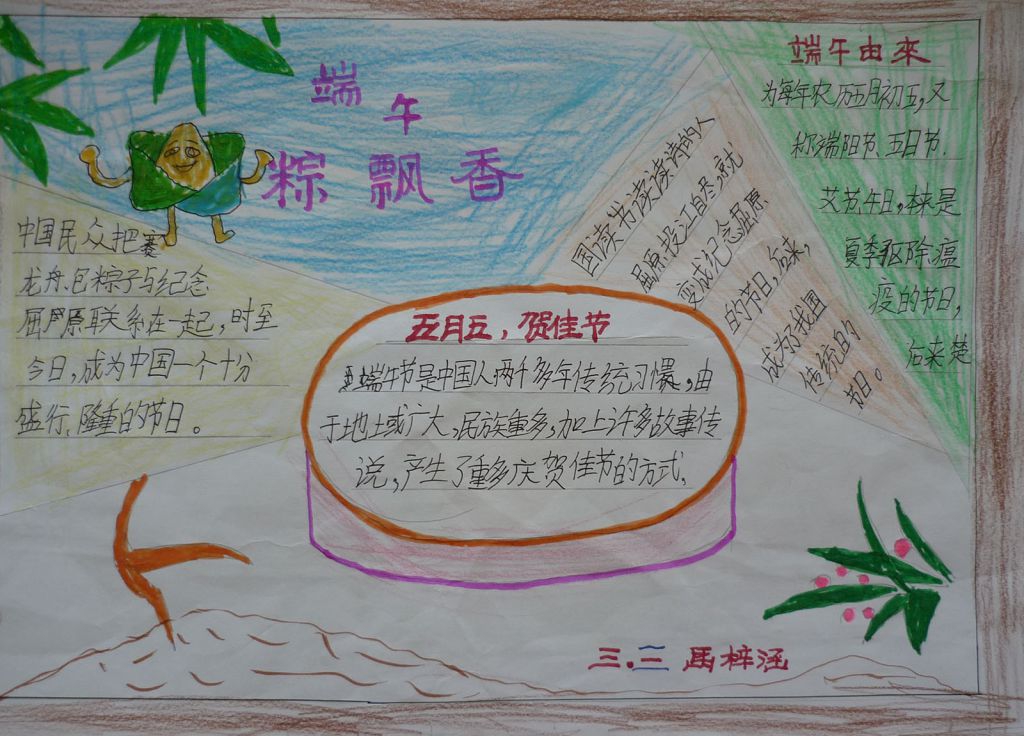 端午
粽飘香
中国民众把赛
龙舟、包粽子与纪念
屈原联系在一起，时至
今日，成为中国一个十分
盛行、隆重的节日。
五月五，贺佳节
端午节是中国人两千多年传统习惯，由
于地土或广大，民族重多，加上许多故事传
说，产生了重多庆贺佳节的方式，
端午由來
为每年农历五月初五，又
称端阳节、五日节、
艾节、午日，本来是
夏季驱除瘟
疫的节日，
后来楚
国读书读读诗的人
屈原投江自尽，就
变成纪念屈原
的节日，后来，
成为了我国
传统的
节日。
三.三 禹梓涵